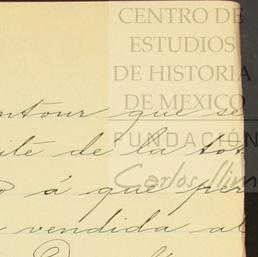 CENTRO DE
ESTUDIOS
DE HISTORIA
DE MEXICO
FUNDACIÓN
Carlos Slim
que se
de la tot
á que per
vendida al